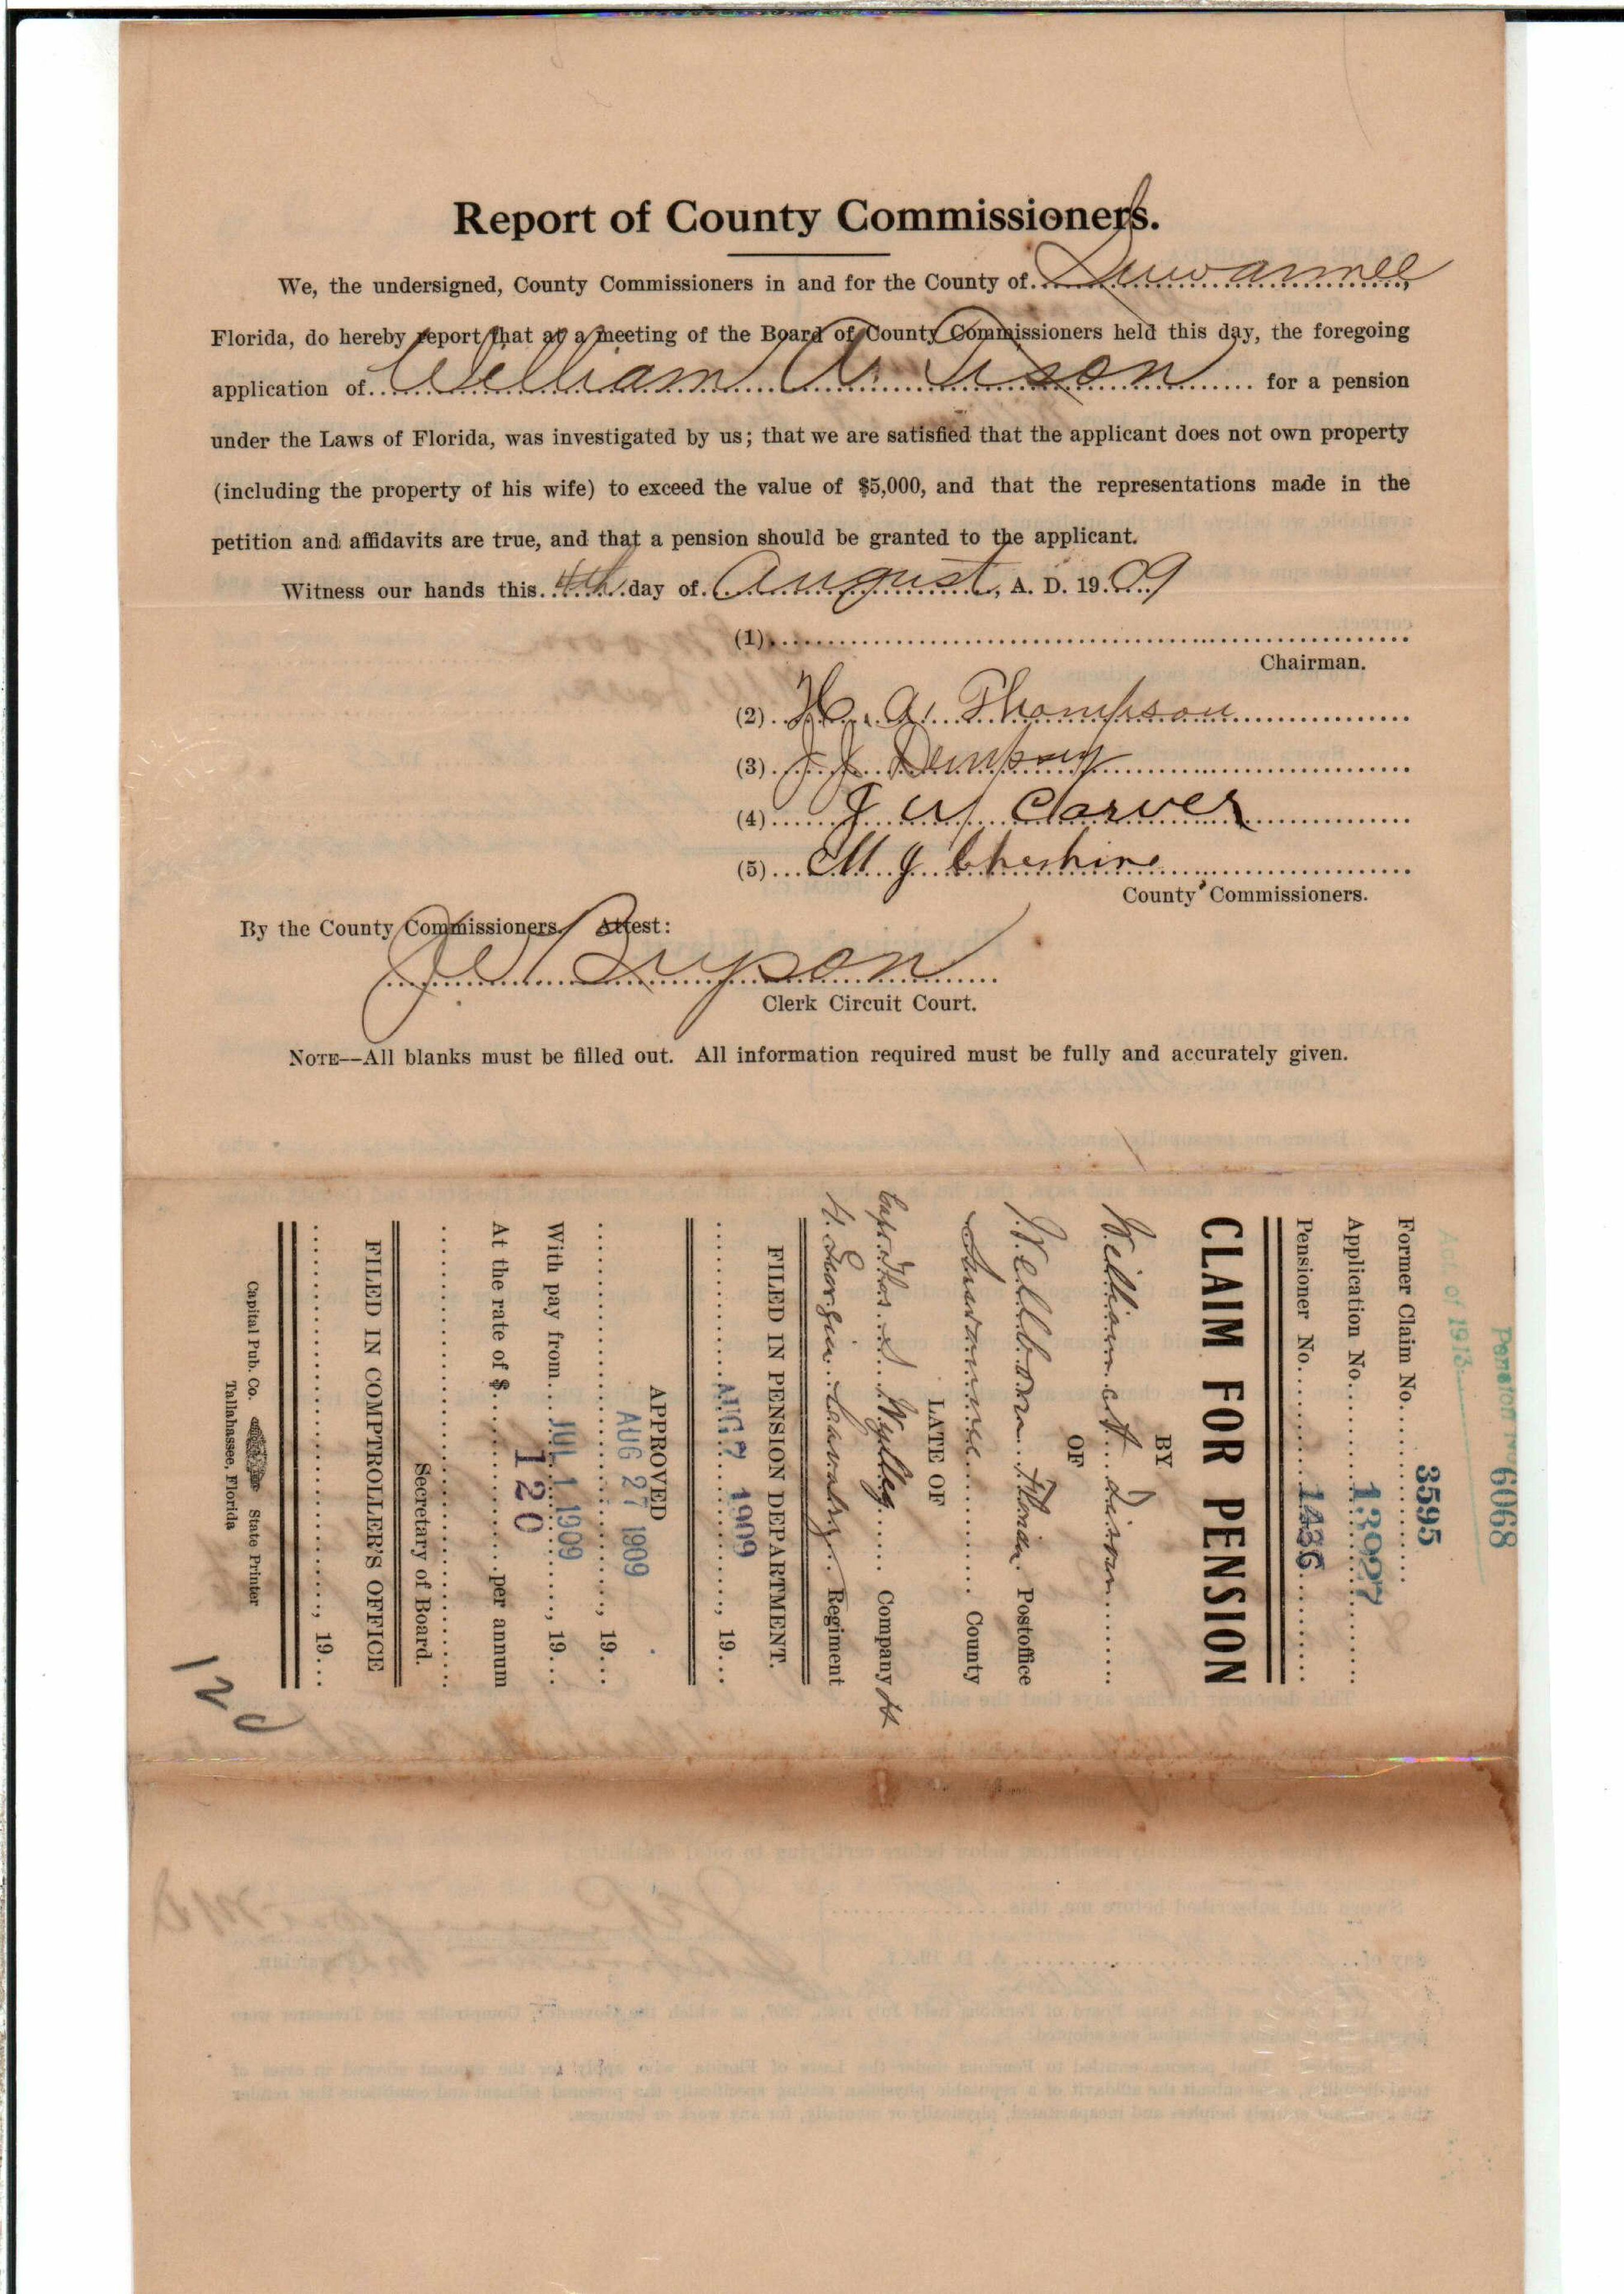 Report of County Commissioners.
We, the undersigned, County Commissioners in and for the County of Suwannee
Florida, do hereby report that at a meeting of the Board of County Commissioners held this day, the foregoing
application of William A. Tison for a pension
under the Laws of Florida, was investigated by us; that we are satisfied that the applicant does not own property
(including the property of his wife) to exceed the value of $5,000, and that the representations made in the
petition and affidavits are true, and that a pension should be granted to the applicant.
Witness our hands this 4th day of August, A. D. 1909
(1)
Chairman.
(2) H. A. Thompson
(3) J. J. Dempsey
(4) J W Carver
(5) M J Cheshire
County Commissioners.
By the County Commissioners. Attest:
Bryson
Clerk Circuit Court.
NOTE—All blanks must be filled out. All information required must be fully and accurately given.
Pension No 6068
Act of 1913
Former Claim No. 3595
Application No. 13927
Pensioner No. 1436
CLAIM FOR PENSION
BY
William A. Tison
OF
Wellborn Florida Postoffice
Suwannee County
LATE OF
Capt. Thos. S. Wylley Company H
4. Georgia Cavalry Regiment
FILED IN PENSION DEPARTMENT.
AUG 7 1909, 19
APPROVED
AUG 27 1909, 19
With pay from JUL 1 1909, 19
At the rate of $ 120 per annum
Secretary of Board.
FILED IN COMPTROLLER'S OFFICE
, 19
Capital Pub. Co. State Printer
Tallahassee, Florida